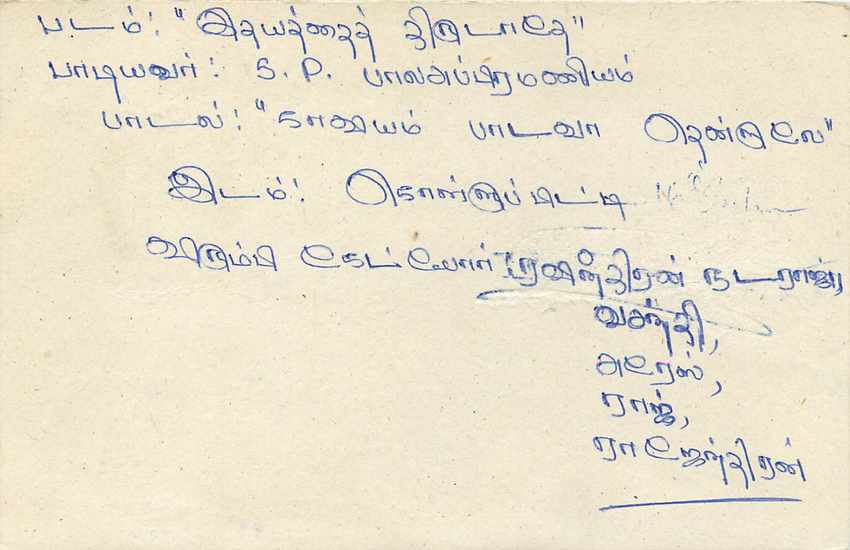 படம்: "இதயத்தைத் திருடாதே"
பாடியவர்: S. P. பாலசுப்பிரமணியம்
பாடல்: "காவியம் பாடவா தென்றலே"
இடம்: கொள்ளுப்பிட்டி
விரும்பி கேட்போர் ரவீந்திரன் நடராஜா,
வசந்தி,
சுரேஸ்,
ராஜ்,
ராஜேந்திரன்